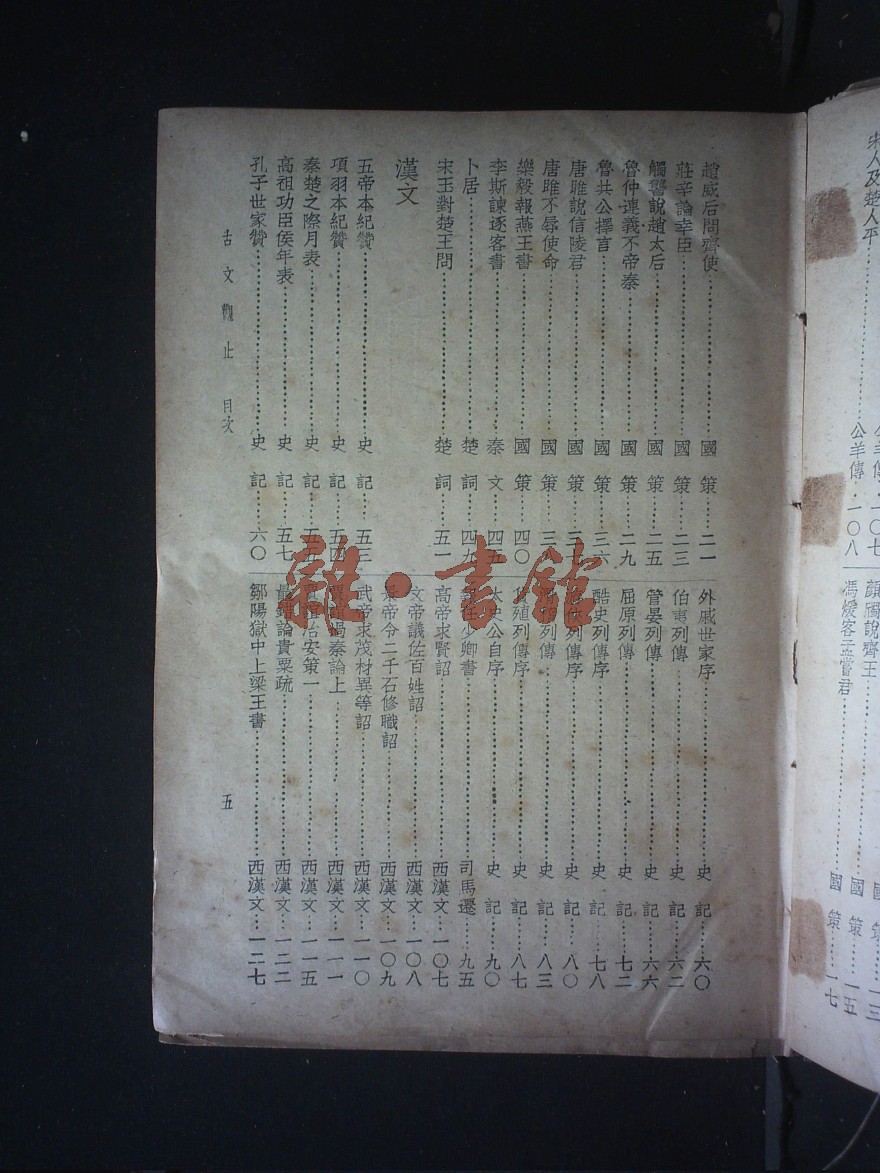 宋人及楚人平
公羊傳·一〇七
公羊傳·一〇八
顏斶說齊王……國策……一三
馮煖客孟嘗君……國策……一五
國策……一七
趙威后問齊使……國策……二一
莊辛論幸臣……國策……二三
觸讋說趙太后……國策……二五
魯仲連義不帝秦……國策……二九
魯共公擇言……國策……三六
唐雎說信陵君……國策
唐雎不辱使命……國策
樂毅報燕王書……國策……四〇
李斯諫逐客書……秦文……四五
卜居……楚詞……四九
宋玉對楚王問……楚詞……五一
漢文
五帝本紀贊……史記……五三
項羽本紀贊……史記……五四
秦楚之際月表……史記……五五
高祖功臣侯年表……史記……五七
孔子世家贊……史記……六〇
外戚世家序……史記……六〇
伯夷列傳……史記……六二
管晏列傳……史記……六六
屈原列傳……史記……七二
酷吏列傳序……史記……七八
列傳序……史記……八〇
列傳……史記……八三
殖列傳序……史記……八七
太史公自序……史記……九〇
任少卿書……司馬遷……九五
高帝求賢詔……西漢文……一〇七
文帝議佐百姓詔……西漢文……一〇八
景帝令二千石修職詔……西漢文……一〇九
武帝求茂材異等詔……西漢文……一一〇
過秦論上……西漢文……一一一
治安策一……西漢文……一一五
鼂錯論貴粟疏……西漢文……一二二
鄒陽獄中上梁王書……西漢文……一二七
古文觀止 目次
五
雜·書館